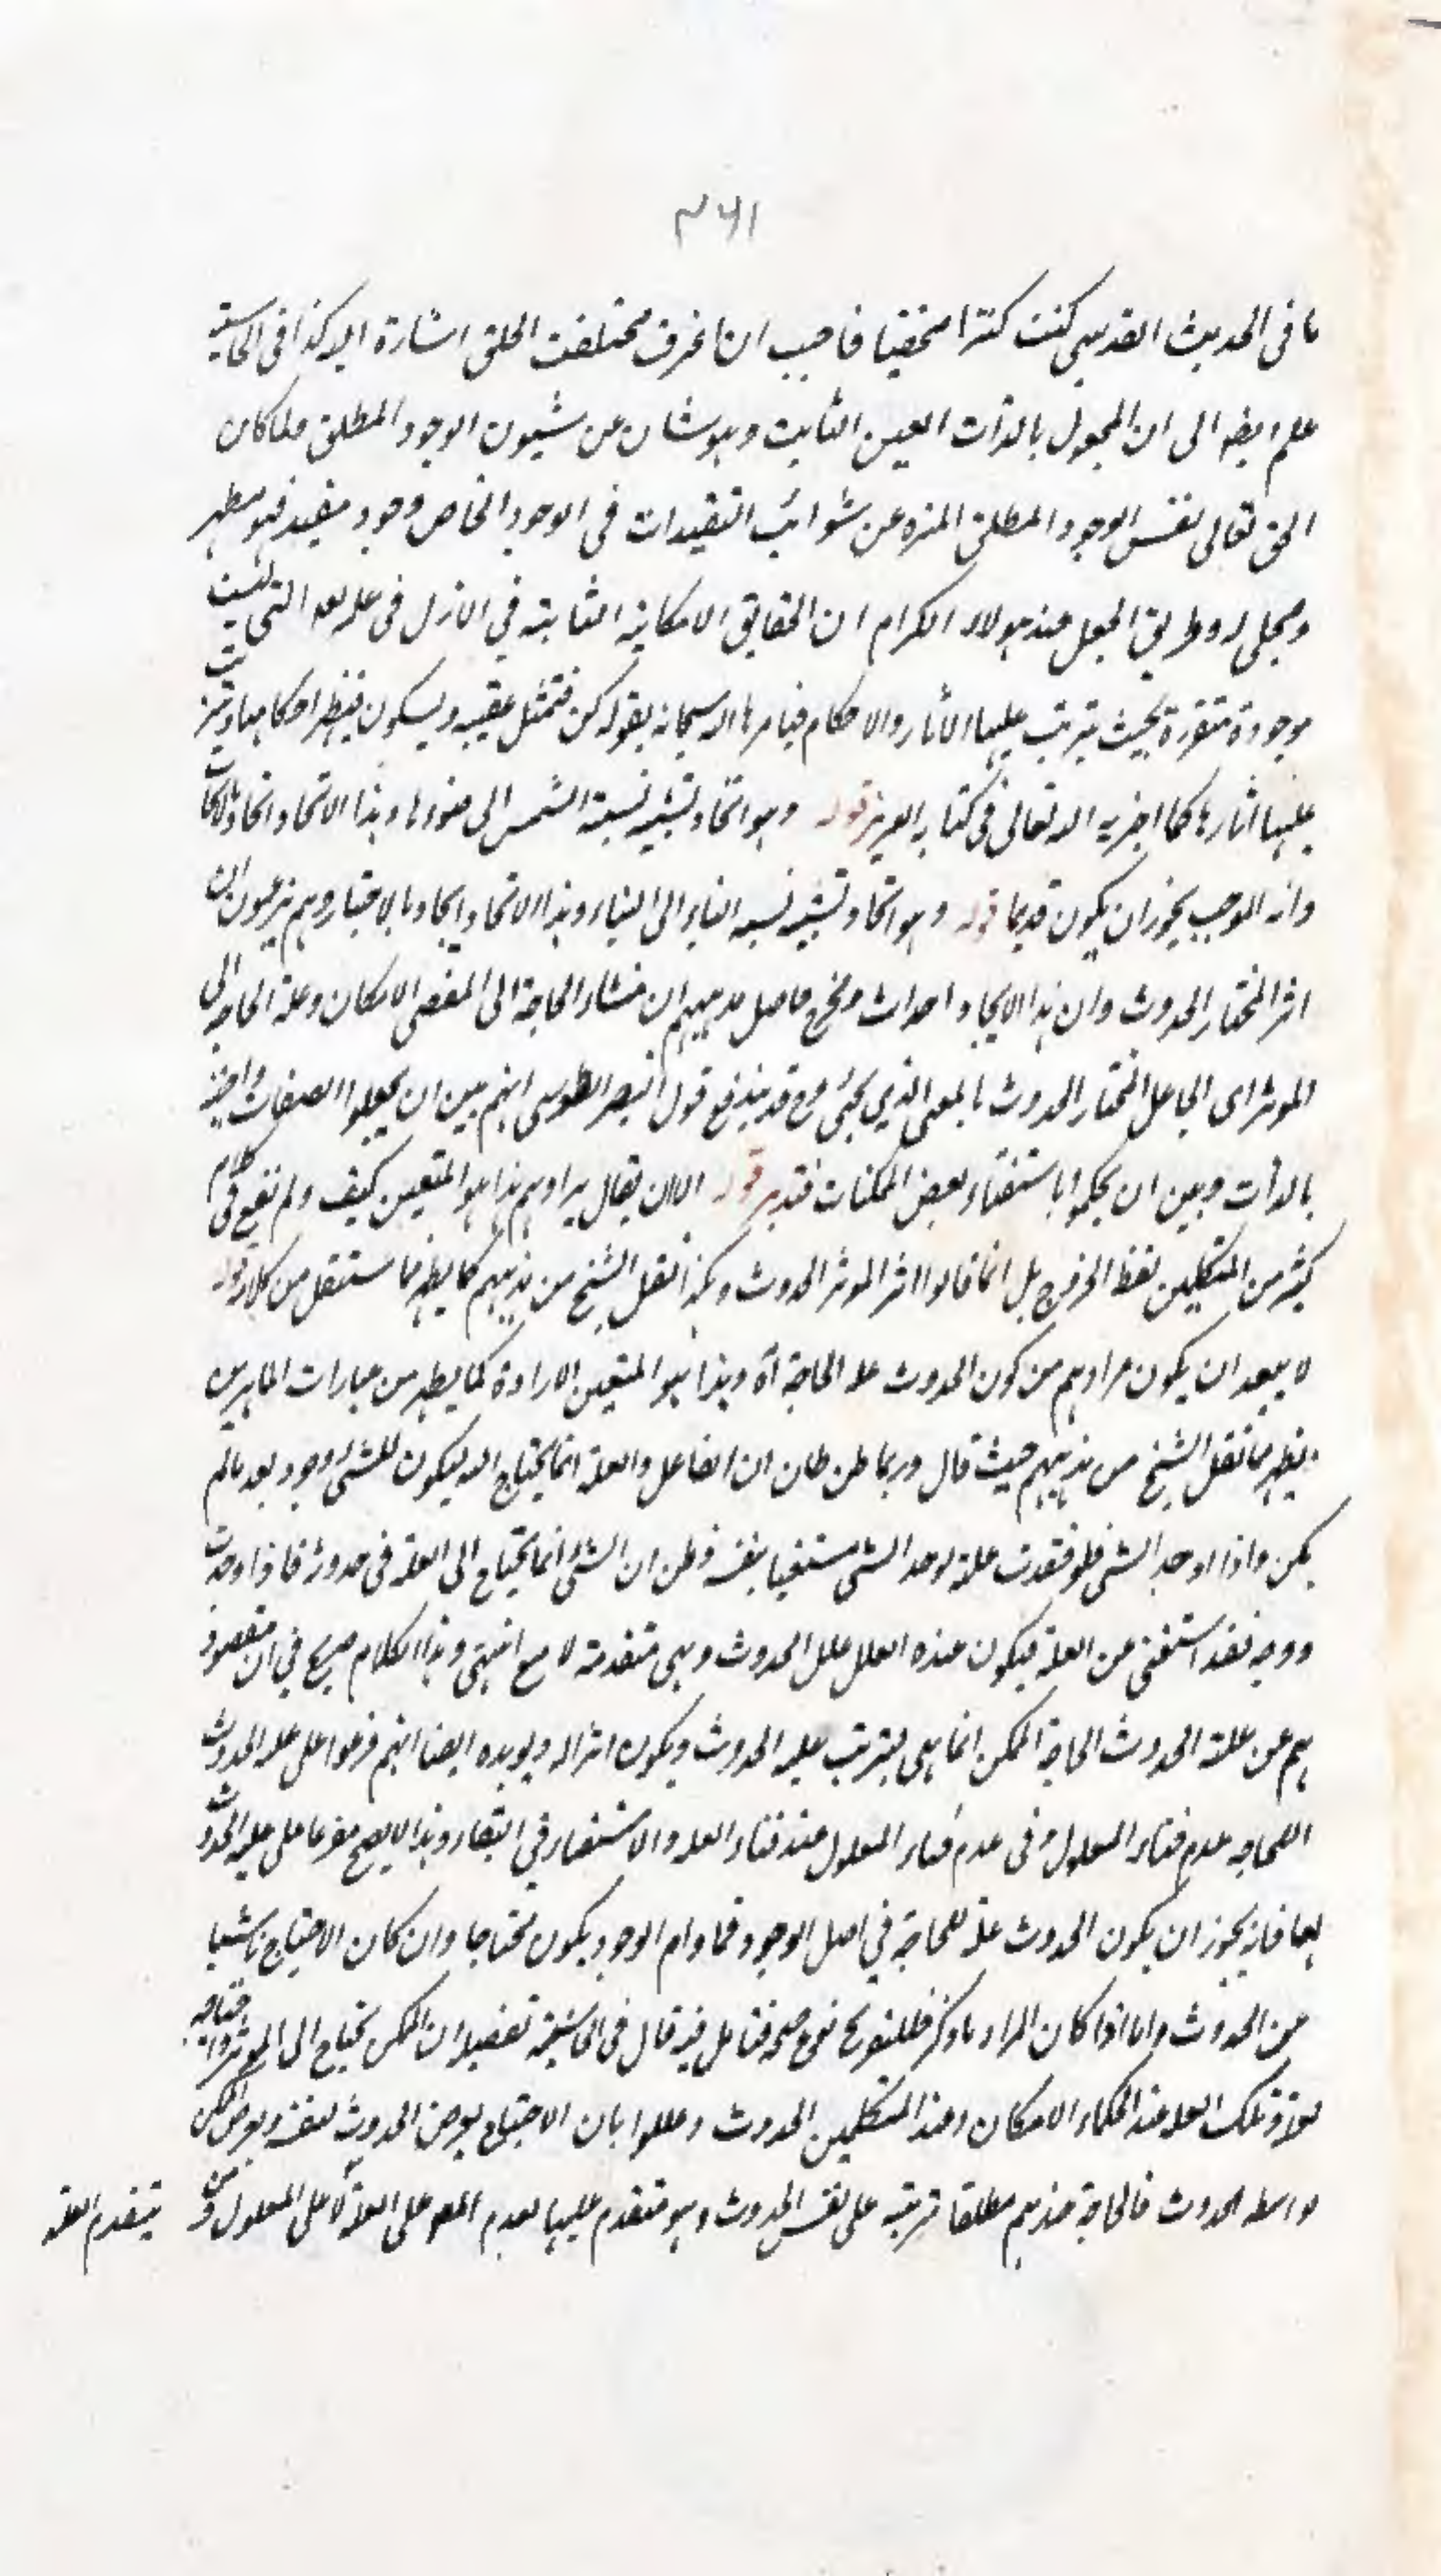 ٣٦١
ما فى الحديث القدسى كنت كنزا مخفيا فاحببت ان اعرف فخلقت الخلق اشارة اليه كذا فى الحاشية
علم ايضا الى ان المجعول بالذات العين الثابت وهو شان من شيون الوجود المطلق ولما كان
الحق تعالى نفس الوجود المطلق المنزه عن شوائب التقيدات فى الوجود الخاص وجود مقيد فهو مظهر
ومجلى له وطريق الجعل عند هولاء الكرام ان الحقايق الامكانية الثابتة في الازل فى علم الله التى ليست
موجودة متقررة بحيث يترتب عليها الآثار والاحكام فيامرها الله سبحانه بقوله كن فتمتثل عقيبه ويكون فيظهر احكامها ويترتب
عليها اثارها كما اخبر به الله تعالى فى كتابه العزيز قوله وهو اتحاد تشبه نسبة الشمس الى ضوءها وهذا الاتحاد
وانه الموجب يجوز ان يكون قديما قوله وهو اتحاد تشبه نسبة البناء الى البناء وهذا الاتحاد ايجاد بالاختيار وهم يزعمون ان
اثر المختار الحدوث وان هذا الايجاد احداث فح حاصل مذهبهم ان منشاء الحاجة الى المقتضى الامكان وعلة الحاجة الى
الموثر اى الجاعل المختار الحدوث بالمعنى الذي يجئ وح قد يندفع قول النصير الطوسى انهم بين ان يجعلوا الصفات واجبة
بالذات وبين ان يحكموا باستغناء بعض الممكنات فتدبر قوله الا ان يقال مرادهم هذا هو المتعين كيف ولم يقع فى كلام
كثير من المتكلمين لفظ الخروج بل انما قالوا اثر الموثر الحدوث وهكذا نقل الشيخ من مذهبهم كما يظهر مما سننقل من كلامه قوله
لا يبعد ان يكون مرادهم من كون الحدوث علة الحاجة آه وهذا هو المتعين الارادة كما يظهر من عبارات الماهرين
ويظهر مما نقل الشيخ من مذهبهم حيث قال وربما ظن ظان ان الفاعل والعلة انما يحتاج اليه ليكون للشئ وجود بعد ما لم
يكن واذا وجد الشئ فلو فقدت علة لوجد الشئ مستغنيا بنفسه وظن ان الشئ انما يحتاج الى العلة فى حدوثه فاذا حدث
ووجد فقد استغنى عن العلة فيكون عنده العلل علل الحدوث وهى متقدمة لا مع انتهى وهذا الكلام صريح في ان مقصود
هم من علة الحدوث الحاجة الممكن انما هى يترتب عليه الحدوث ويكون اثرا له ويويده ايضا انهم فرعوا على علة الحدوث
للحاجه عدم فناء المعلول وفى عدم فناء المعلول عند فناء العله والاستغناء في البقاء وهذا لا يصح مفرعا على علية الحدوث
لها فانه يجوز ان يكون الحدوث علة للحاجة في اصل الوجود فما دام الوجود يكون محتاجا وان كان الاحتياج ناشيا
من الحدوث واما اذا كان المراد ما ذكر فللتفريع نوع صحه فتامل فيه قال فى الحاشية تفصيله ان الممكن يحتاج الى الموثر واحتياجه
لعلة وتلك العلة عند الحكماء الامكان وعند المتكلمين الحدوث وعللوا بان الاحتياج يعرض الحدوث لنفسه ويعرض الممكن
بواسطه الحدوث فالحاجة عندهم مطلقا مترتبة على نفس الحدوث وهو متقدم عليها تقدم العلة على المعلول
يتقدم العلة